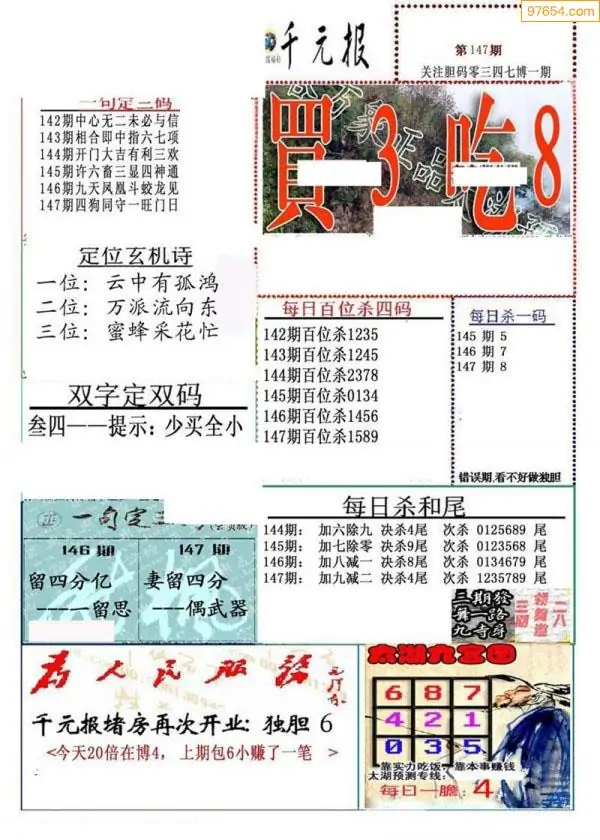 97654.com
千元报
第147期
关注胆码零三四七博一期
一句定三码
142期中心无二未必与信
143期相合即中指六七项
144期开门大吉有利三欢
145期许六畜三显四神通
146期九天凤凰斗蛟龙见
147期四狗同守一旺门日
買 3 吃 8
定位玄机诗
一位：云中有孤鸿
二位：万派流向东
三位：蜜蜂采花忙
每日百位杀四码
142期百位杀1235
143期百位杀1245
144期百位杀2378
145期百位杀0134
146期百位杀1456
147期百位杀1589
每日杀一码
145 期 5
146 期 7
147 期 8
错误期,看不好做独胆
双字定双码
叁四——提示：少买全小
一句定三
146 期
留四分亿
——留思
147 期
妻留四分
——偶武器
每日杀和尾
144期： 加六除九 决杀4尾 次杀 0125689 尾
145期： 加七除零 决杀9尾 次杀 0123568 尾
146期： 加八减一 决杀8尾 次杀 0134679 尾
147期： 加九减二 决杀4尾 次杀 1235789 尾
三期发
舞一路
九寺舞
为人民服务
千元报堵房再次开业：独胆 6
<今天20倍在博4，上期包6小赚了一笔 >
太湖九宫图
6 8 7
4 2 1
0 3 5
靠实力吃饭，靠本事赚钱
太湖预测专线：
每日一胆：4